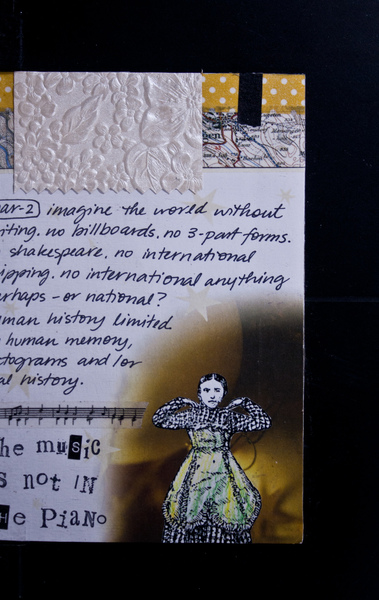 ar-2 imagine the world without
iting. no billboards. no 3-part forms.
shakespeare. no international
ipping. no international anything
erhaps - or national?
uman history limited
human memory,
ctograms and/or
al history.
he music
s not IN
He PIANO